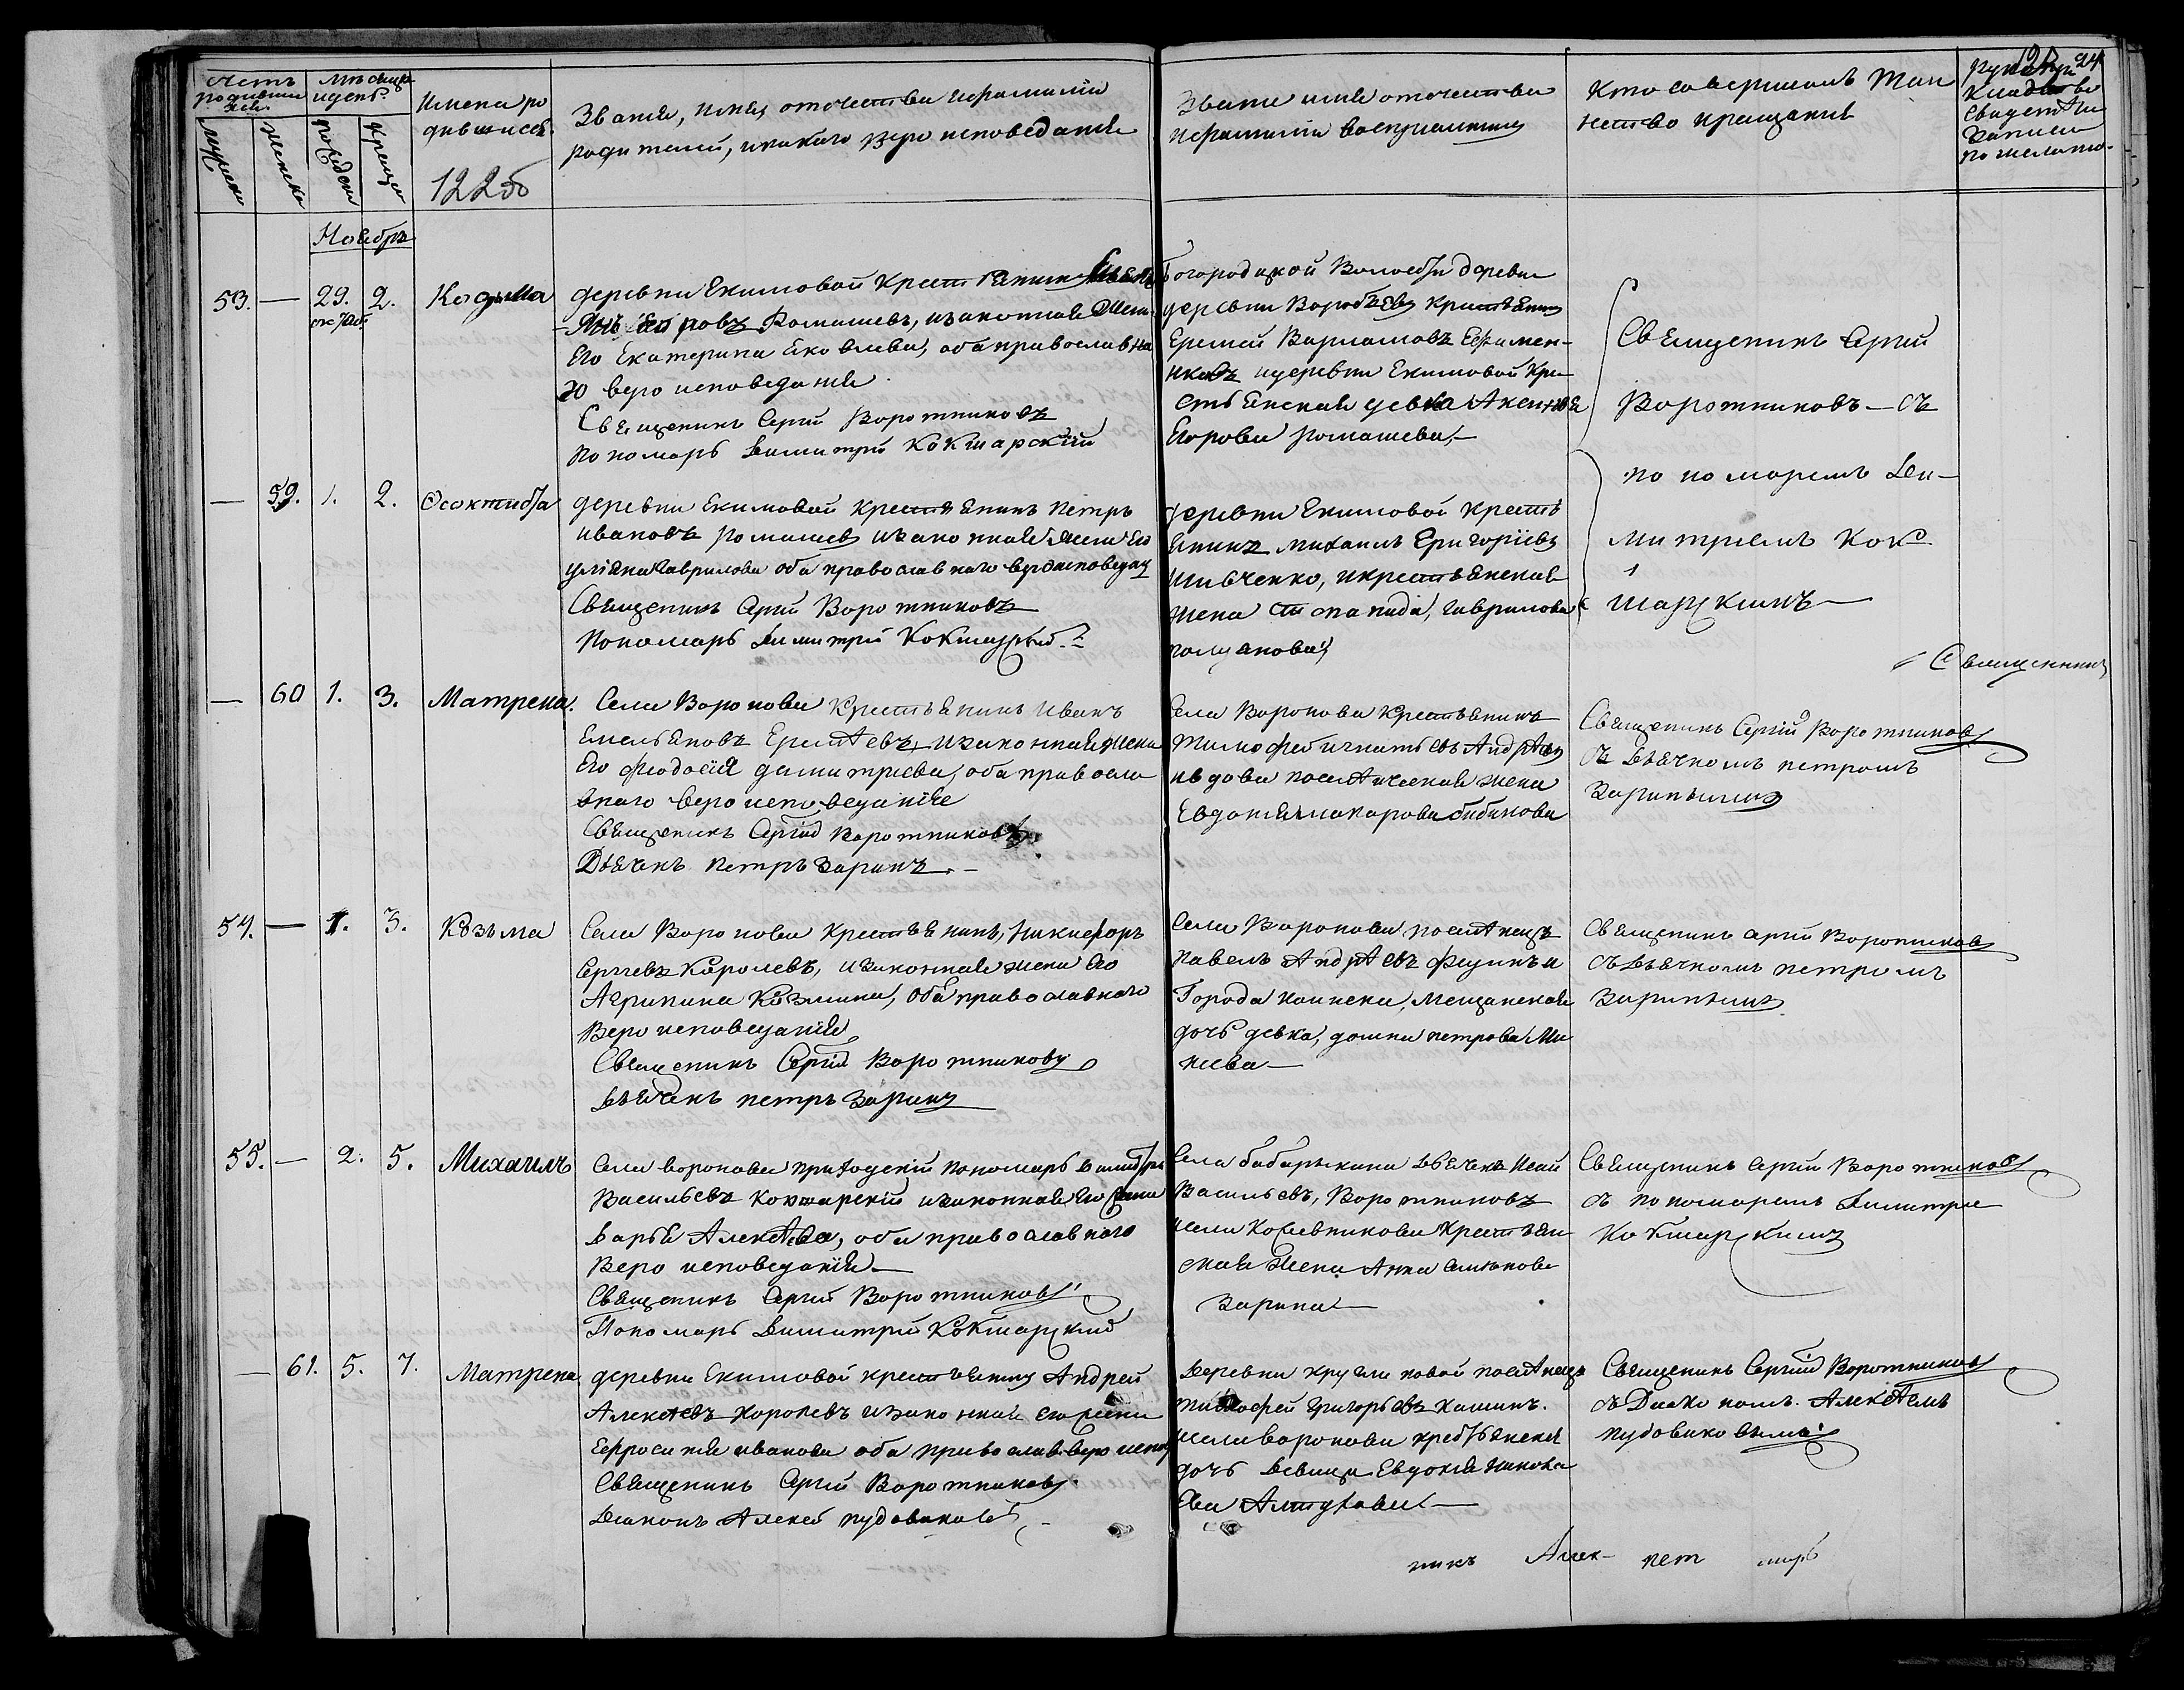 Счетъ родивши хся.
Мѣсяцъ и день.
Мужеска
Женска
рождения
крещения
Имена ро
дившихся.
122об
Звания, имя, отчество и фамилия
родителей, и какого веро исповедания
Звание имя отчество
и фамилия восприемник
Кто совершалъ Таи
нство крещения
Руко
свидетели
записи
по желанию.
24
Ноябрь
53. — 29. октяб 2. Кодзма
деревни Екимовой крестьянин
Ромашевъ, и законная жена
Его Екатерина Яковлева, оба православна
го веро исповедания.
Священникъ Сергій Воротниковъ
пономарь Димитрій Кокшарскій
Богородцкой Волости деревни
деревни Воробьевой крестьянин
Еремей Варламовъ Ефимен-
ковъ и деревни Екимовой кре
стьянская девка Аксинья
Егорова Ромашева, —
Священникъ Сергій
Воротниковъ — съ
по номаремъ Ди-
митріемъ Кок
шарскимъ —
— 59. 1. 2. Ѳеоктиста
деревни Екимовой крестьянинъ Петръ
Ивановъ Ромашев и законная жена Его
Улияна Гаврилова оба православнаго вероисповедан
Священникъ Сергій Воротниковъ
Пономарь Димитрій Кокшарскій
деревни Екимовой кресть
янинъ Михаилъ Григоріевъ
Шевченко, и крестьянская
жена Степанида, Гаврилова
Священникъ
— 60 1. 3. Матрена.
Села Воронова Крестьянинъ Иванъ
Емельяновъ Ереmѣевъ, и законная жена
Его Феодосія Димитриева, оба правосла
внаго веро исповеданіяе
Священникъ Сергій Воротниковъ
Дьячекъ Петръ Заринъ. —
Села Воронова крестьянинъ
Тимофей Игнатьевъ Андрѣев
и вдова поселѣнческая жена
Евдокия Макарова Бибикова
Священникъ Сергій Воротниковъ
съ дьячкомъ Петромъ
Заринымъ
54. — 1. 3. Козьма
Села Воронова крестьянинъ, Никифоръ
Сергеевъ Королевъ, и законная жена Его
Агрипина Козмина, оба православнаго
Веро исповеданія
Священникъ Сергій Воротниковъ
Дьячекъ Петръ Заринъ
Села Воронова поселѣнецъ
Павелъ Андрѣевъ Фединъ и
Города Каинска, мещанская
дочь девка, Домна Петрова Ми
неева —
Священникъ Сергій Воротников
съ дьячкомъ Петромъ
Заринымъ
55. — 2. 5. Михаилъ
Села Воронова приходскій пономарь Димитрій
Васильевъ Кокшарскій и законная его жена
Дарья Алексѣева, оба православнаго
Веро исповеданія —
Священникъ Сергій Воротниковъ
Пономарь Димитрій Кокшарский
Села Бабарыкина дьячекъ Исай
Васильевъ, Воротниковъ
и села Кожевникова крестьян
ская жена Анна Семенова
Зарина —
Священникъ Сергій Воротниковъ
съ пономаремъ Димитрие
Кокшарскимъ
— 61. 5. 7. Матрена
деревни Екимовой крестьянинъ Андрей
Алексѣевъ Королевъ и законная его жена
Ефросиния Иванова оба православ. веро испов
Священникъ Сергій Воротниковъ
Диаконъ Алексей Пудовиков —
Деревни Кругликовой поселѣнецъ
Тимофей Григорьевъ Кашинъ.
и села Воронова крестьянская
дочь девица Евдокия Никола
ева Алтухова —
Священникъ Сергій Воротниковъ
съ Диакономъ. Алексѣемъ
Пудовиковымъ
никъ Алек- пет марь